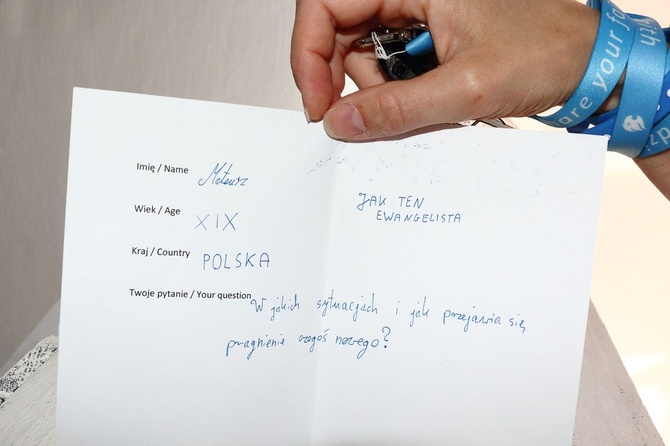 Imię / Name Mateusz
JAK TEN
EWANGELISTA
Wiek / Age XIX
Kraj / Country POLSKA
Twoje pytanie / Your question W jakich sytuacjach i jak przejawia się
pragnienie czegoś nowego?
are your fa